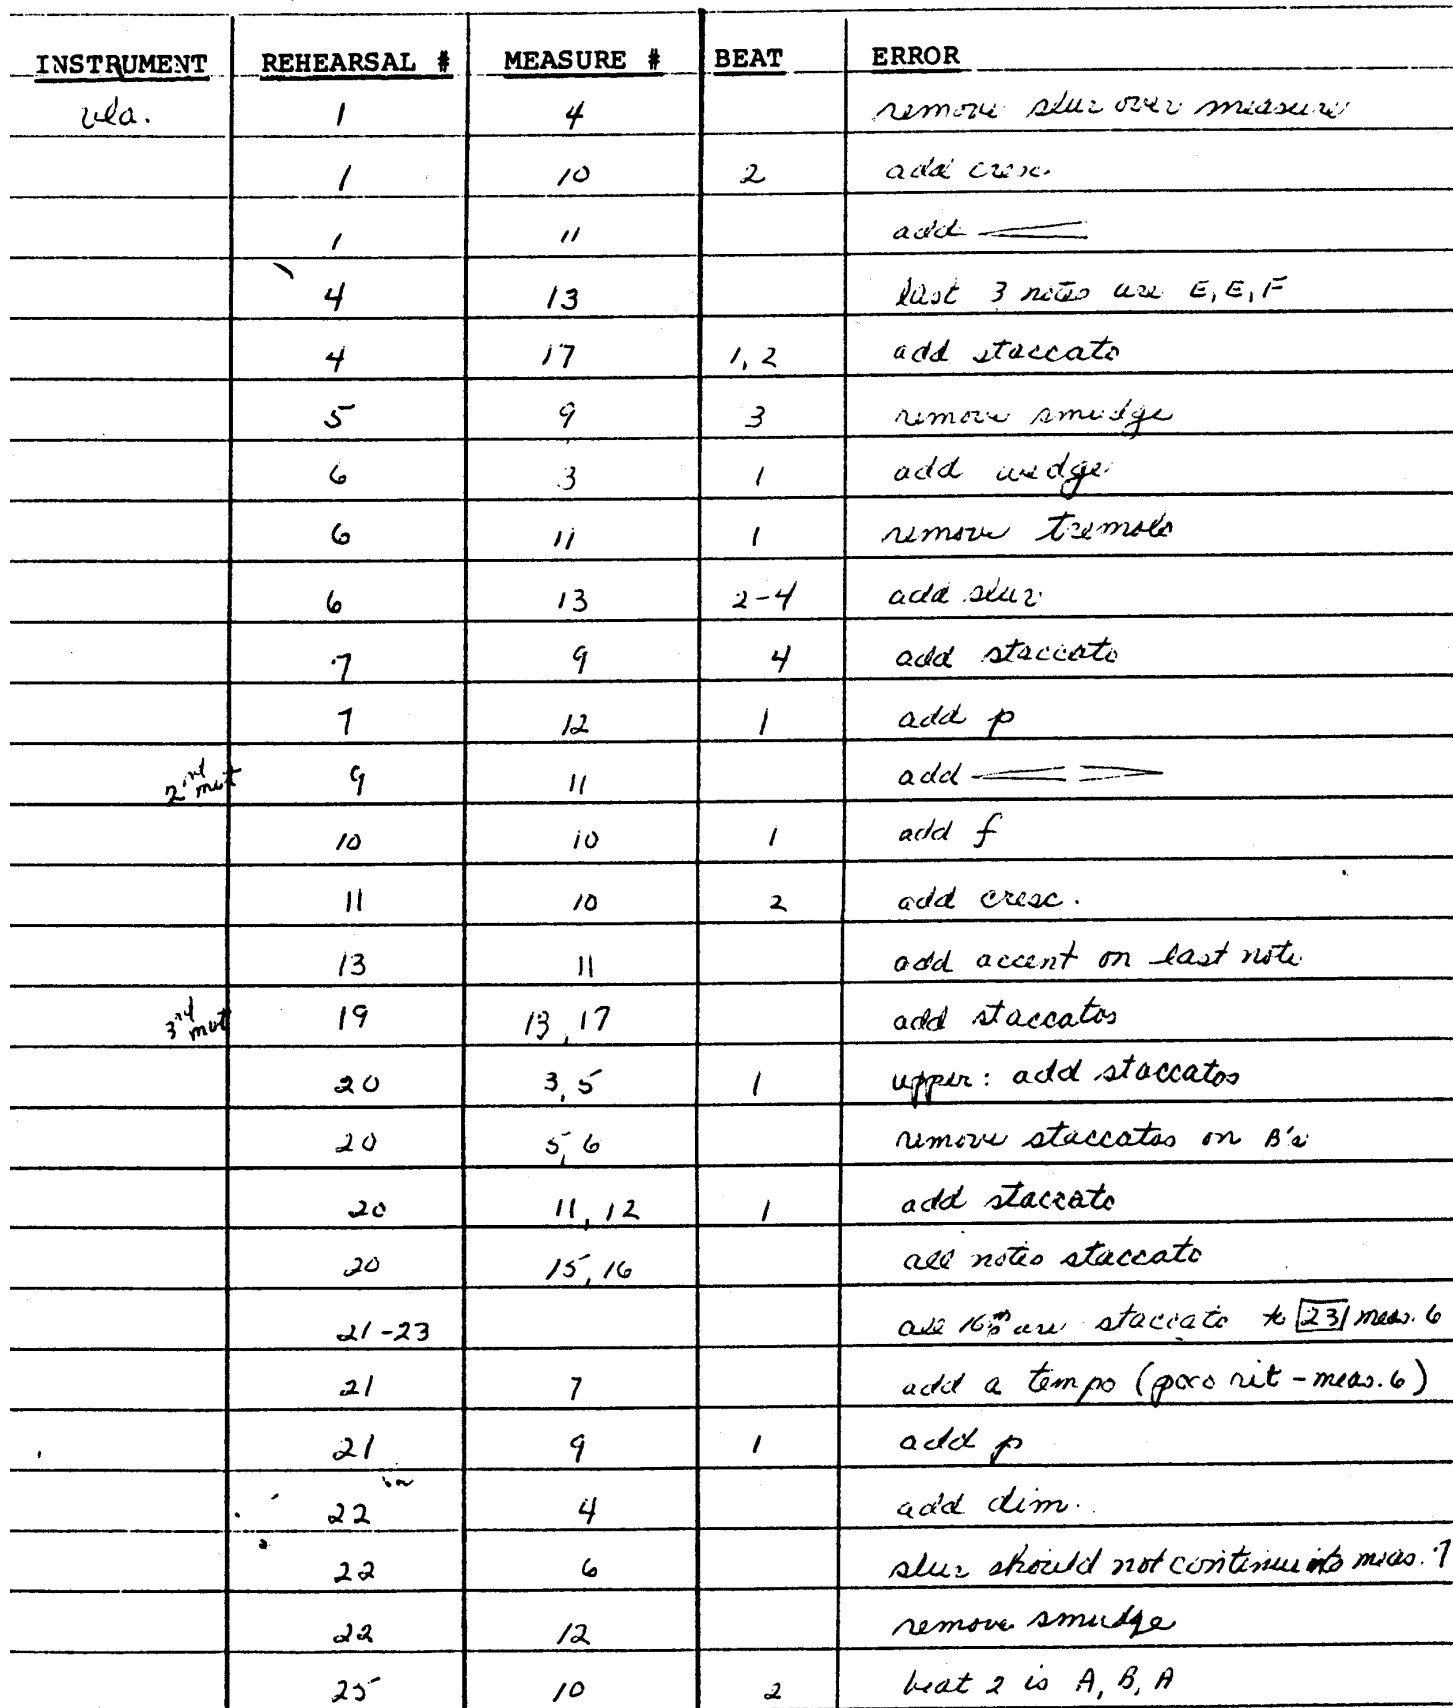 INSTRUMENT REHEARSAL # MEASURE # BEAT ERROR
vla. 1 4 remove slur over measure
1 10 2 add cresc.
1 11 add <
4 13 last 3 notes are E, E, F
4 17 1, 2 add staccato
5 9 3 remove smudge
6 3 1 add wedge
6 11 1 remove tremolo
6 13 2-4 add slur
7 9 4 add staccato
7 12 1 add p
2nd mvt 9 11 add < >
10 10 1 add f
11 10 2 add cresc.
13 11 add accent on last note
3rd mvt 19 13, 17 add staccatos
20 3, 5 1 upper: add staccatos
20 5, 6 remove staccatos on B's
20 11, 12 1 add staccato
20 15, 16 all notes staccato
21-23 all 16ths are staccato to 23 meas. 6
21 7 add a tempo (poco rit - meas. 6)
21 9 1 add p
22 4 add dim.
22 6 slur should not continue into meas. 7
22 12 remove smudge
25 10 2 beat 2 is A, B, A